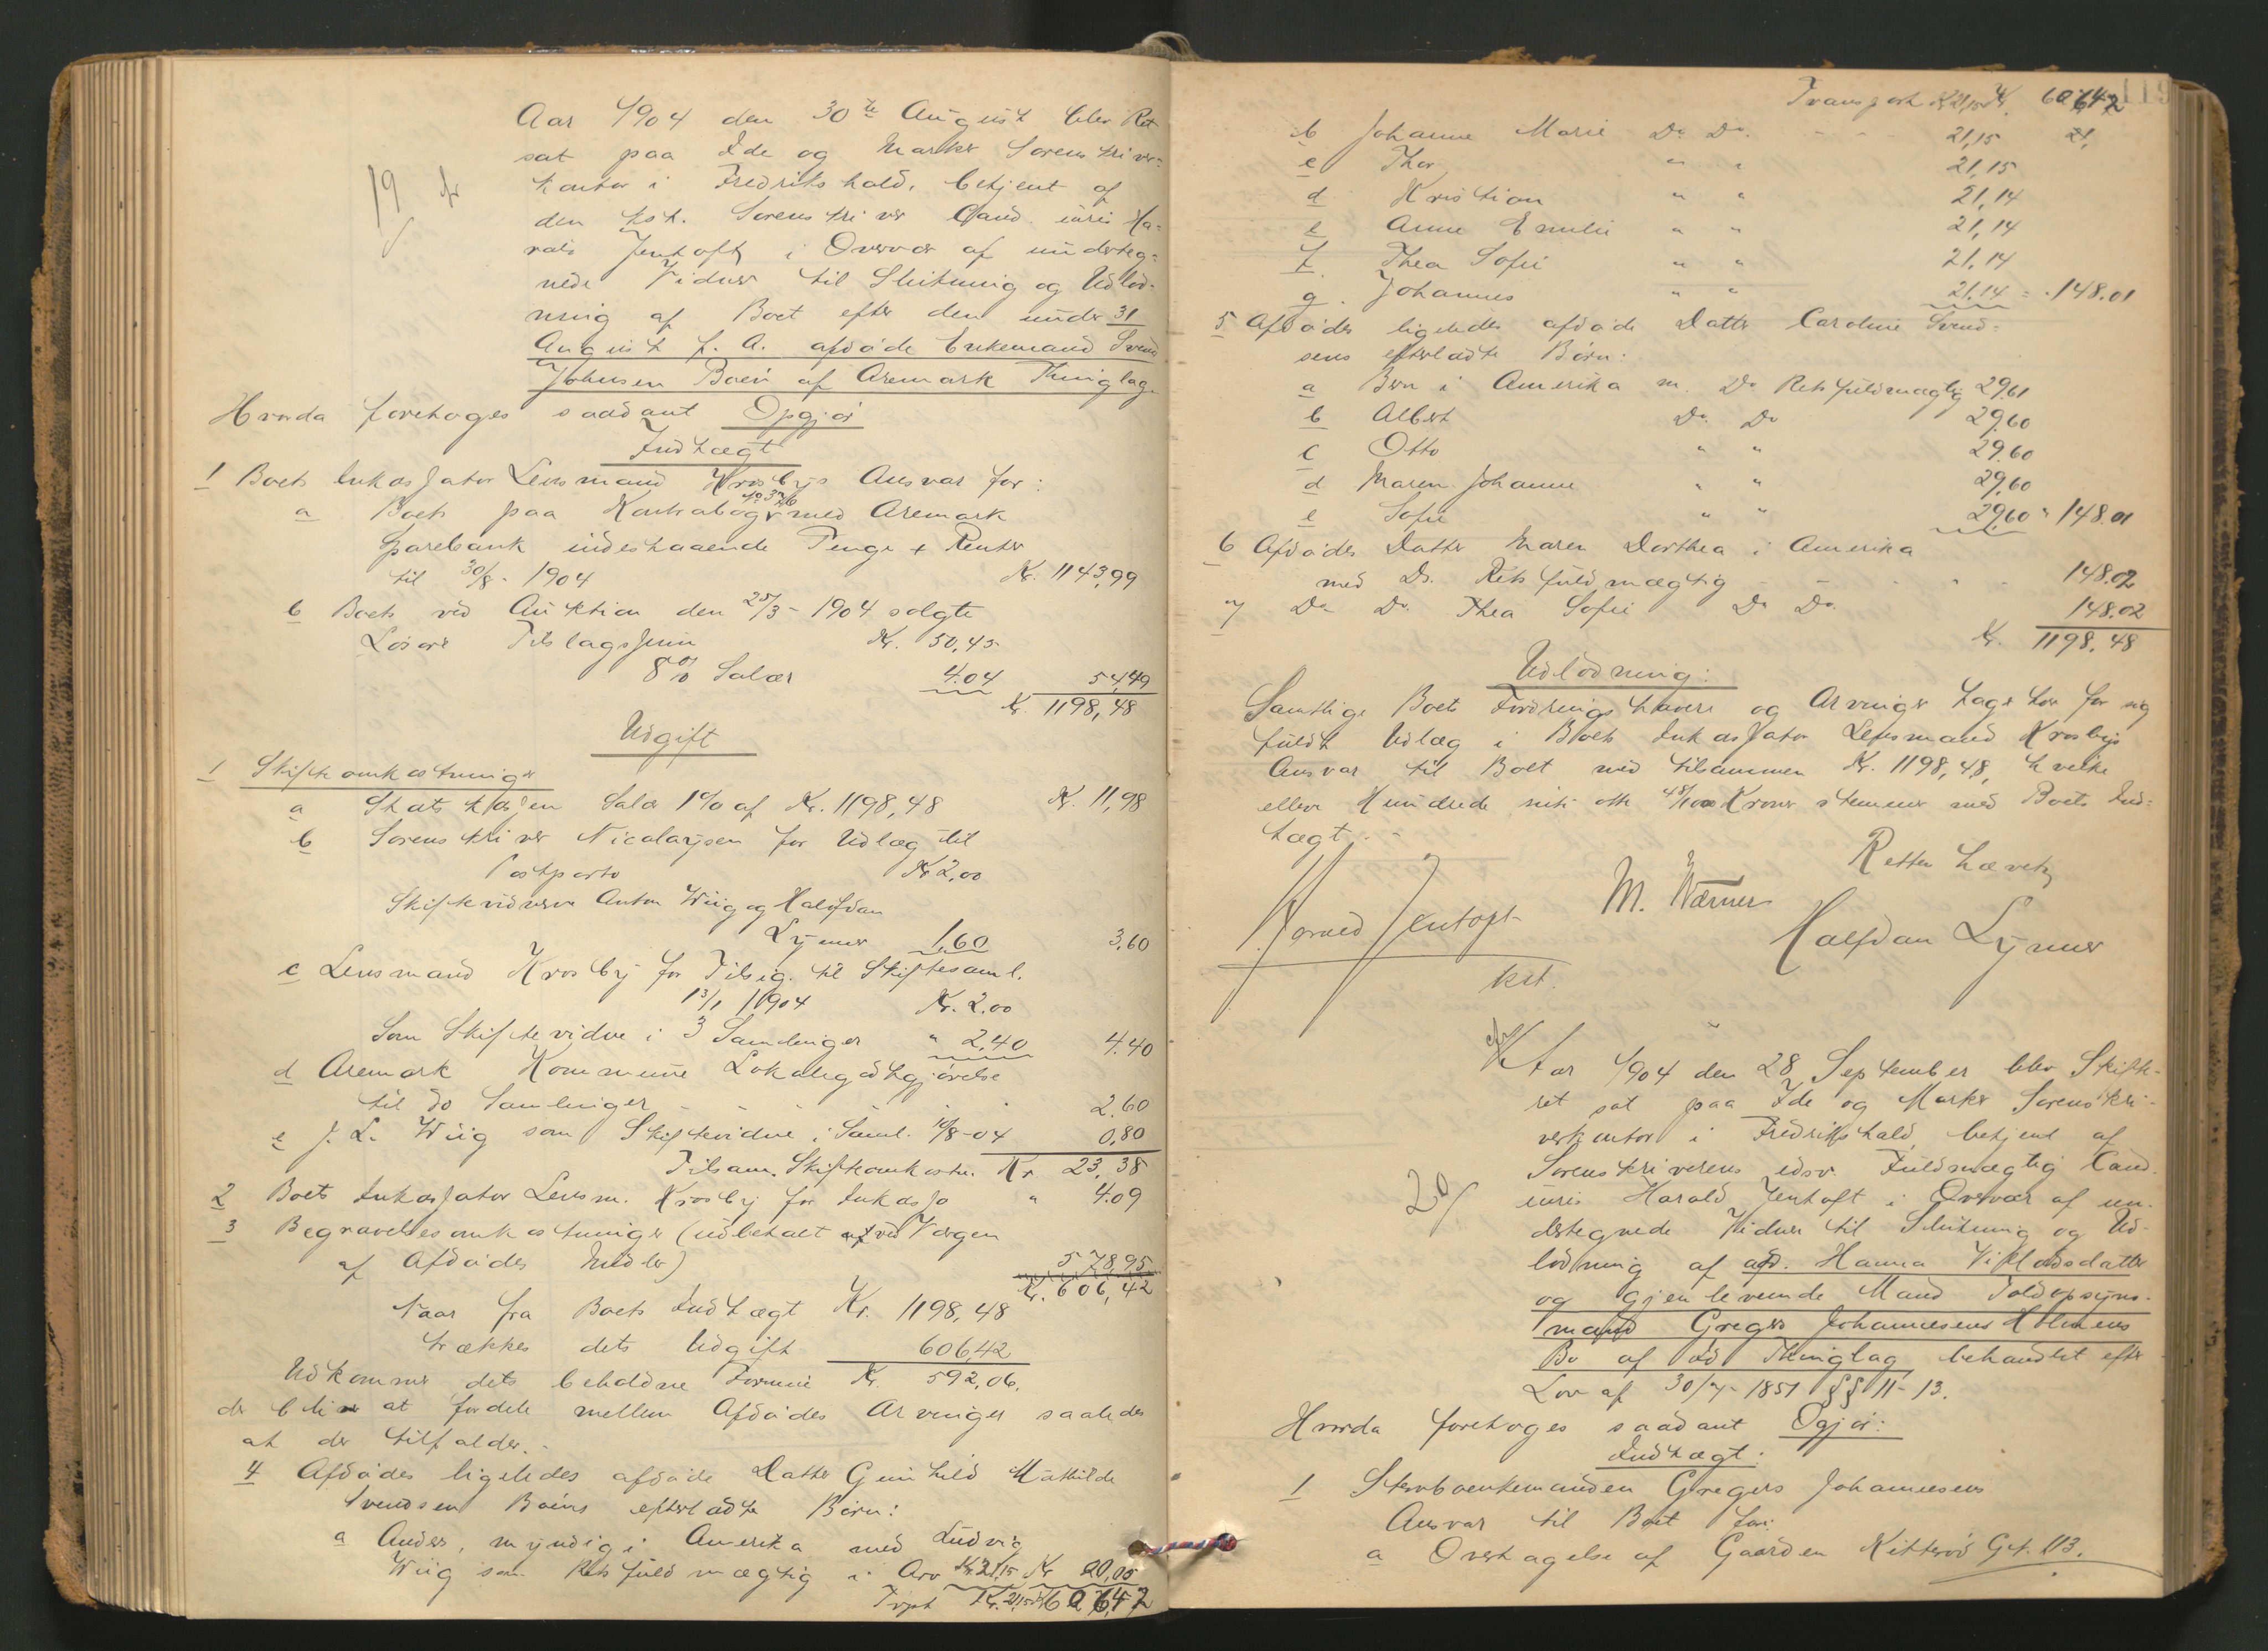 Aar 1904 den 30te August blev Ret
sat paa Ide og Marker Sorenskriver=
kontor i Fredrikshald, betjent af
den kst. Sorenskriver Cand. iuris Ha=
rald Jentoft, i Overvær af underteg=
nede Vidner til Slutning og Udlod=
ning af Boet efter den under 31
August f. A. afdøde Enkemand Svend
Johnsen Bøen af Aremark Thinglag.
19
Hvorda foretoges saadant Opgjør
Indtægt
1 Boets Inkassator Lensmand Krosbys Ansvar for:
a Boets paa Kontrabog No 376 med Aremark
Sparebank indestaaende Penge + Renter
til 30/8 - 1904 Kr. 1143,99
b Boets ved Auktion den 25/3 - 1904 solgte
Løsøre Tilslagssum Kr. 50,45
8% Salær 4.04 54,49
Kr. 1198,48
Udgift
1 Skifteomkostninger
a Statskassen Salær 1% af Kr. 1198,48 Kr. 11,98
b Sorenskriver Nicolaysen for Udlæg til
Postporto Kr 2,00
Skiftevidnerne Anton Wiig og Halfdan
Lyner 1,60 3,60
c Lensmand Krosby for Tilsig. til Skiftesaml.
13/1 1904 Kr. 2.00
Som Skiftevidne i 3 Samlinger " 2,40 4.40
d Aremark Kommune Lokalegodtgjørelse
til do Samlinger 2.60
e J. L. Wiig som Skiftevidne i Saml. 10/8-04 0,80
Tilsam. Skifteomkostn. Kr. 23,38
2 Boets Inkassator Lensm. Krosby for Inkasso " 4.09
3 Begravelsesomkostninger (udbetalt af ved Værgen
af Afdødes Midler) 578,95
Kr. 606,42
Naar fra Boets Indtægt Kr. 1198,48
trækkes dets Udgift 606,42
Udkommer dets beholdne Formue Kr. 592,06.
der bliver at fordele mellem Afdødes Arvinger saaledes
at der tilfalder.-
4 Afdødes ligeledes afdøde Datter Gunhild Mathilde
Svendsen Bøens efterladte Børn:
a Anders, myndig i Amerika med Ludvig
Wiig som Retsfuldmægtig i Arv Kr. 21,15 Kr
Trpt Kr. 21,15 606,42
Transport Kr 21,15 Kr. 606,42
119
b Johanne Marie Do Do. 21,15
c Thor " " 21,15
d Kristian " " 21,14
e Anne Emilie " " 21,14
f. Thea Sofie " " 21,14
g. Johannes " " 21,14 = 148.01
5 Afdødes ligeledes afdøde Datter Caroline Svend=
sens efterladte Børn:
a Bern i Amerika m. Do Retsfuldmægtig 29,61
b Albert Do Do 29,60
c Otto " " 29,60
d Maren Johanne " " 29,60
e Sofie " " 29,60 " 148.01
6 Afdødes Datter Maren Dorthea i Amerika
med Do. Retsfuldmægtig 148.02
7 Do Do. Thea Sofie Do Do. 148.02
Kr. 1198,48
Udlodning:
Samtlige Boets Fordringshavere og Arvinger tager her for sig
fuldt Udlæg i Boets Inkassator Lensmand Krosbys
Ansvar til Boet med tilsammen Kr. 1198,48, hvilke
elleve Hundrede niti otte 48/100 Kroner stemmer med Boets Ind=
tægt.-
Retten hævet
Harald Jentoft
kst.
M. Wærner
Halfdan Lyner
Aar 1904 den 28 September blev Skifte-
ret sat paa Ide og Marker Sorenskri-
verkontor i Fredrikshald betjent af
Sorenskriverens edsv. Fuldmægtig Cand.
iuris Harald Jentoft i Overvær af un-
dertegnede Vidner til Slutning og Ud-
lodning af afd. Hanna
og gjenlevende Mand Toldopsyns-
mand Gregers Johannesens Holmens
Bo af Thinglag behandlet efter
Lov af 30/7-1851 §§ 11-13.
20
Hvorda foretoges saadant Ogjør:
Indtægt:
1 Stervboenkemanden Gregers Johannesens
Ansvar til Boet for:
a Overtagelse af Gaarden Kitterød G. 113.